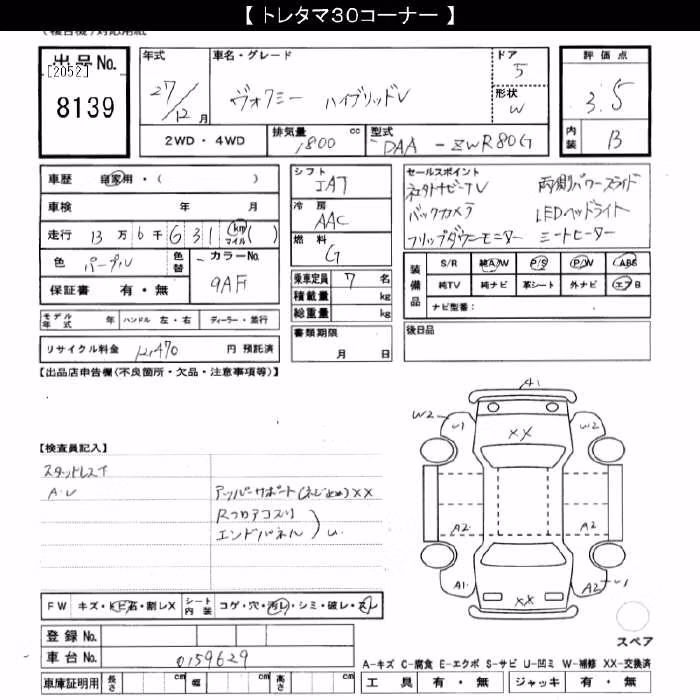 【 トレタマ30コーナー 】
(複合機)対応用紙
出品No.
[2052]
8139
年式
27/12月
車名・グレード
ヴォクシー ハイブリッドV
ドア
5
形状
W
評価点
3.5
内装
B
2WD・4WD
排気量 1800 cc
型式 DAA-ZWR80G
車歴 自家用・( )
車検 年 月
走行 13万6千631 km マイル ( )
色 パープル 色替
カラーNo. 9AF
保証書 有・無
モデル年式 年 ハンドル 左・右 ディーラー・並行
リサイクル料金 円 預託済
シフト
IAT
冷房
AAC
燃料
G
乗車定員 7 名
積載量 kg
総重量 kg
書類期限
月 日
セールスポイント
社外ナビTV 両側パワースライド
バックカメラ LEDヘッドライト
フリップダウンモニター シートヒーター
装備品
S/R 純A/W P/S P/W ABS
純TV 純ナビ 革シート 外ナビ エアB
ナビ型番:
後日品
【出品店申告欄(不良箇所・欠品・注意事項等)】
【検査員記入】
スタッドレスT
A・U
アッパーサポート(ネジ止め)XX
Rフロアコスリ
エンドパネル U
A1
W2 U1 W2
XX
A2 A2
A1 A2 U1
XX
スペア
FW キズ・トビ石・割レX シート内装 コゲ・穴・汚レ・シミ・破レ・スレ
登録No.
車台No. 0159629
車庫証明用 長さ cm 幅 cm 高さ cm
A-キズ C-腐食 E-エクボ S-サビ U-凹ミ W-補修 XX-交換済
工具 有・無 ジャッキ 有・無